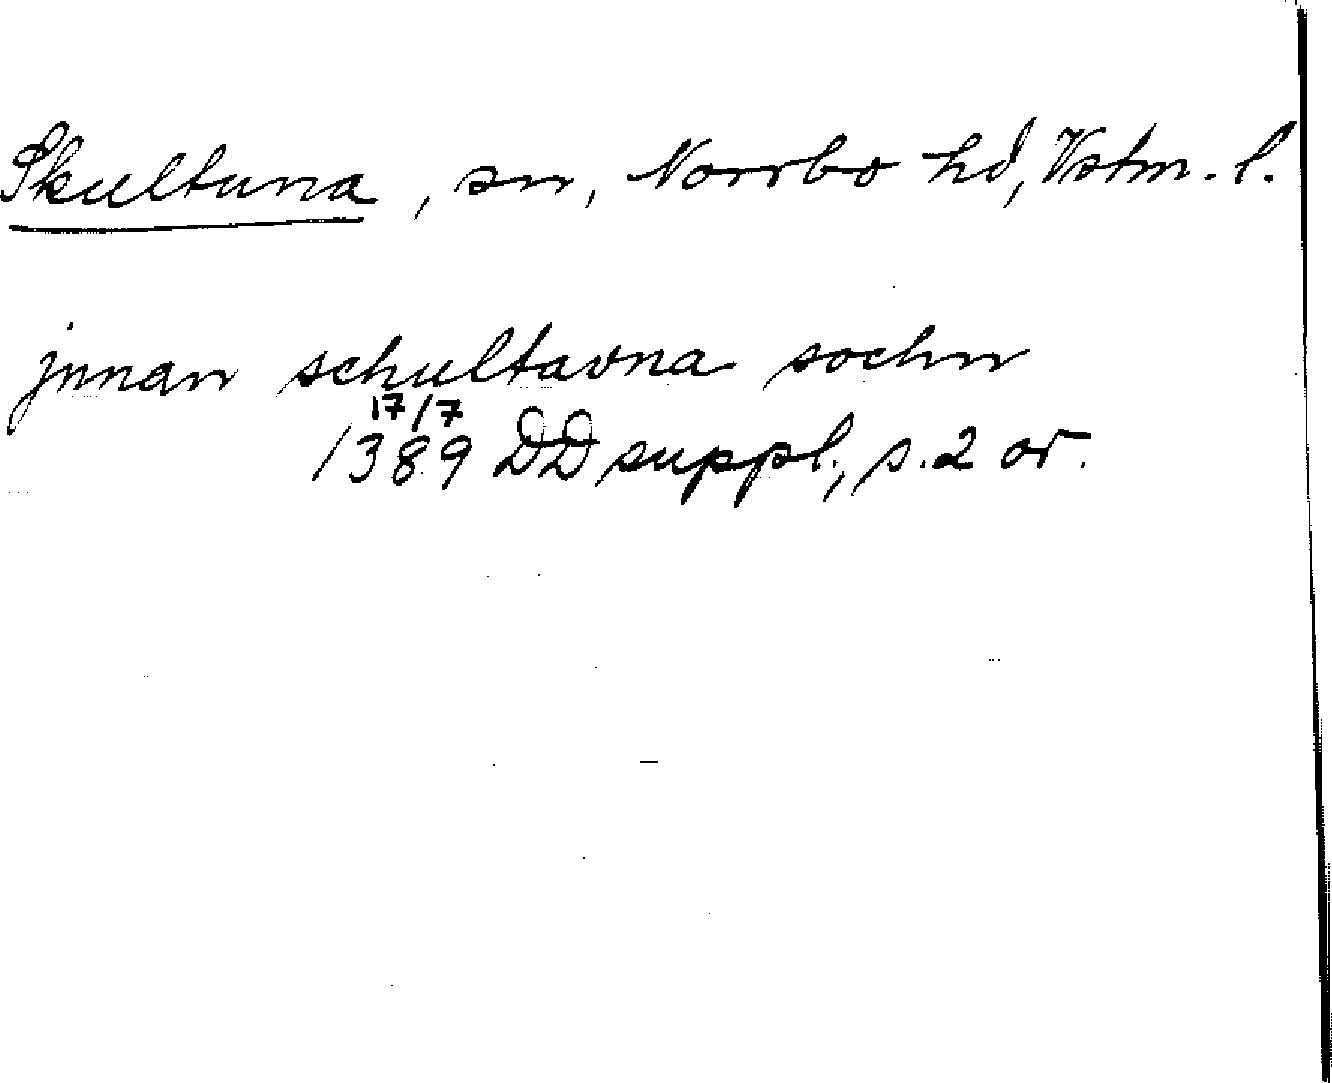 Skultuna, sn, Norrbo hd, Vstm. l.
jnnan schultavna sochn
17/7
1389 DD suppl., s. 2 or.